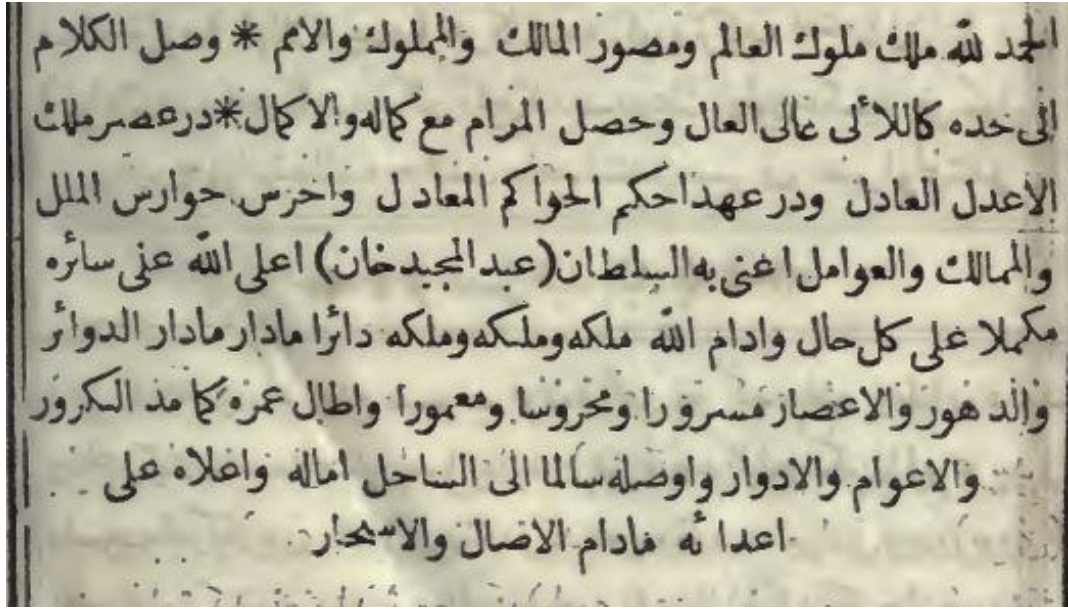 الحمد لله ملك ملوك العالم ومصور المالك والمملوك والامم * وصل الكلام
الى حده كاللألى عالى العال وحصل المرام مع كماله والاكمال * در عصر ملك
الاعدل العادل ودر عهد احكم الحواكم المعادل واخرس حوارس الملل
والممالك والعوامل اعنى به السلطان (عبد المجيد خان) اعلى الله على سائره
مكملا على كل حال وادام الله ملكه وملكه وملكه دائرا مادار مادار الدوائر
والدهور والاعصار مسرورا ومحروسا ومعمورا واطال عمره كما مد الكرور
والاعوام والادوار واوصله سالما الى الساحل اماله واعلاه على
اعدائه مادام الاصال والاسحار